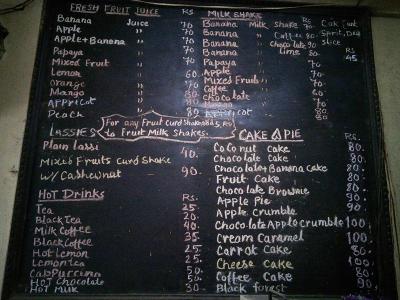 FRESH FRUIT JUICE RS
Banana Juice 70
Apple " 70
Apple + Banana " 70
Papaya " 70
Mixed Fruit " 70
Lemon " 60
Orange " 70
Mango " 80
Appricot " 80
Peach " 80
MILK SHAKE RS.
Banana Milk Shake 70
Banana Coffee 80
Banana Chocolate 90
Banana Lime 80
Papaya 70
Apple
Mixed Fruit "
Coffee "
Chocolate "
Appricot
RS
45
For any Fruit Curd Shake add
to Fruit Milk Shakes.
LASSIES
Plain lassi 40.
Mixed Fruits curd shake
W/ Cashewnut 90.
HOT Drinks RS.
Tea 25
Black Tea 20.
Milk Coffee 40.
Black Coffee 35.
Hot Lemon 25.
Lemon Tea 25.
Cappuccino 50.
HOT Chocolate 50.
HOT Milk 30.
CAKE & PIE RS.
Coconut cake 80.
Chocolate Cake 80.
Chocolate + Banana Cake 80.
Fruit Cake 80.
Chocolate Brownie 80.
Apple Pie 90.
Apple Crumble 90.
Chocolate Apple crumble 100.
Cream Caramel 100.
Carrot Cake 80.
Cheese Cake 100.
Coffee Cake 80.
Black forest 90.